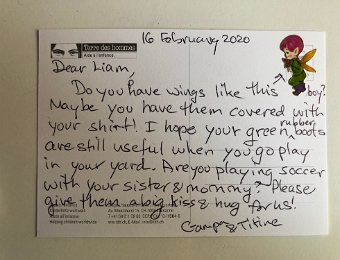 Terre des hommes
Aide à l'enfance.
16 February, 2020
Dear Liam,
Do you have wings like this boy?
Maybe you have them covered with
your shirt! I hope your green rubber boots
are still useful when you go play
in your yard. Are you playing soccer
with your sister & mommy? Please
give them a big kiss & hug for us!
Gramps & Titine